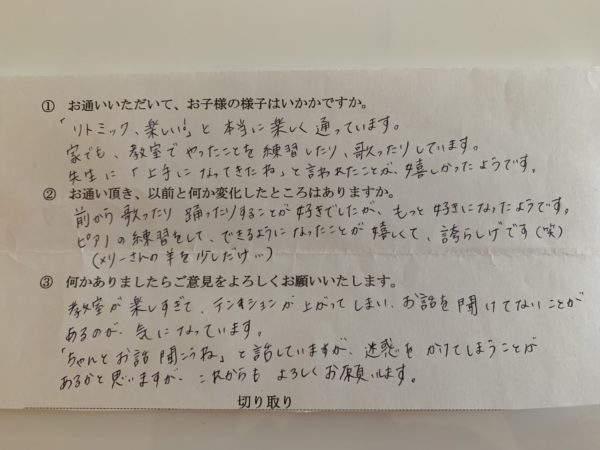 ① お通いいただいて、お子様の様子はいかかですか。
「リトミック、楽しい!」と 本当に楽しく 通っています。
家でも、教室で やったことを 練習したり、歌ったりしています。
先生に「上手に なってきたね」と 言われたことが、嬉しかったようです。
② お通い頂き、以前と何か変化したところはありますか。
前から 歌ったり 踊ったりすることが 好きでしたが、もっと 好きになったようです。
ピアノの練習をして、できるようになったことが 嬉しくて、誇らしげです(笑)
(メリーさんの羊を少しだけ…)
③ 何かありましたらご意見をよろしくお願いいたします。
教室が 楽しすぎて、テンションが 上がって しまい、お話を聞けてないことが
あるのが、気になっています。
「ちゃんと お話 聞こうね」と 話していますが、迷惑を かけてしまうことが
あるかと思いますが、これからも よろしくお願いします。
切り取り